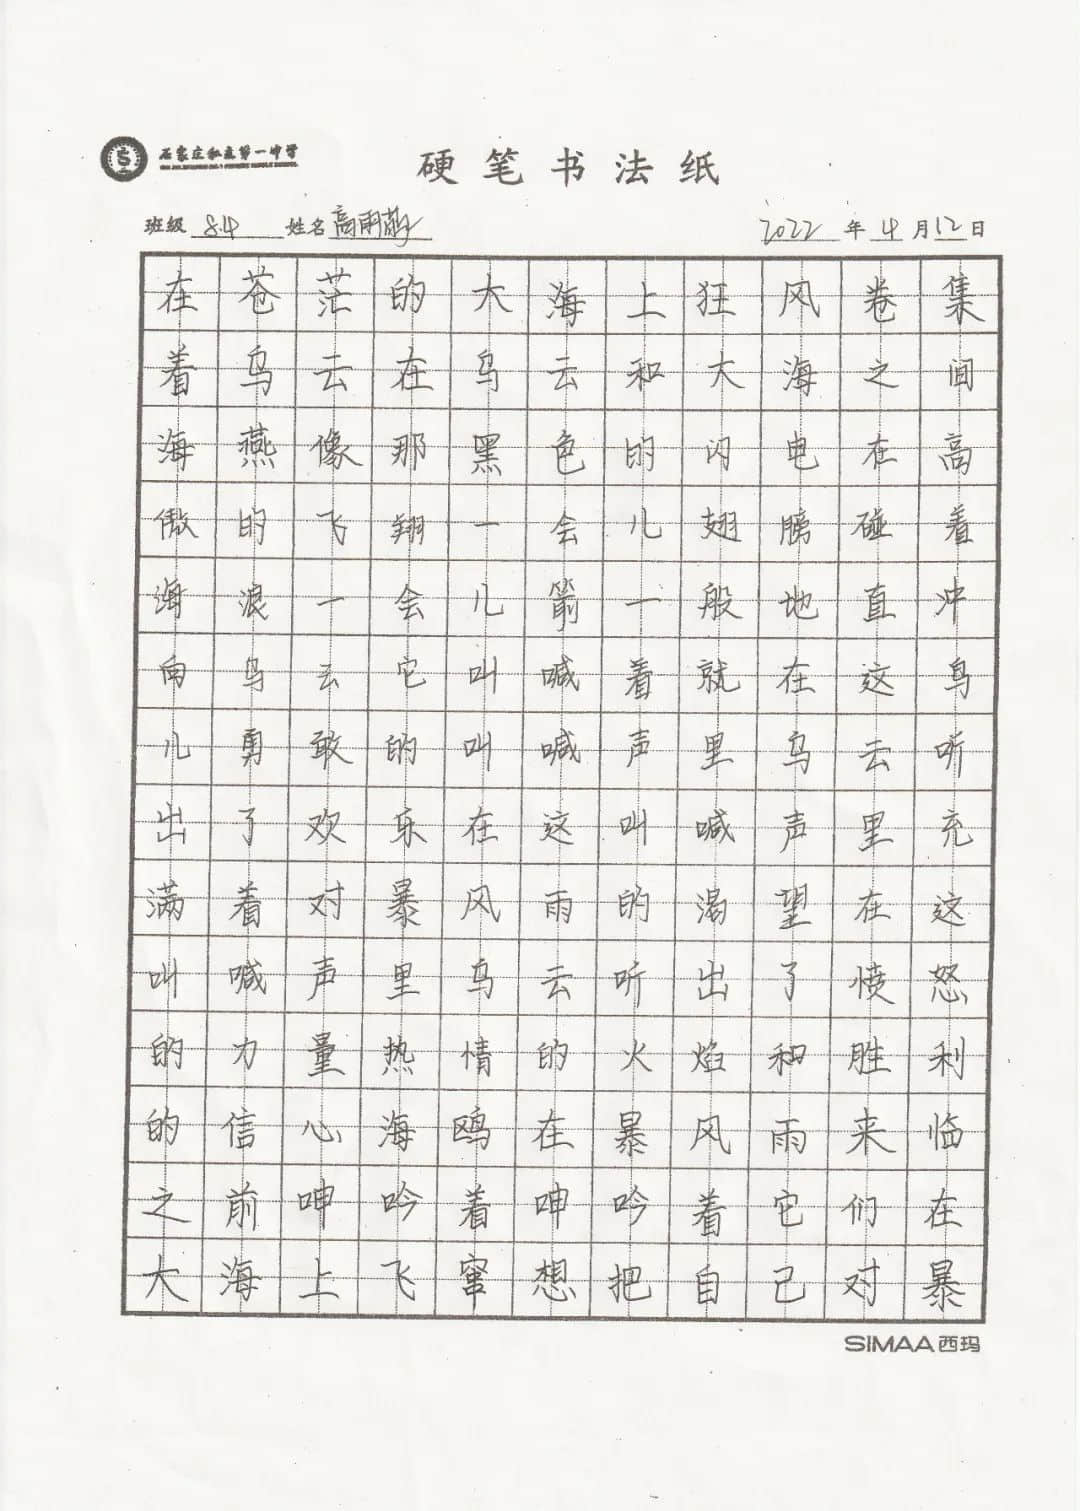 石家庄私立第一中学
硬笔书法纸
班级 8.4 姓名 高雨萌 2022年4月12日
在苍茫的大海上狂风卷集
着乌云在乌云和大海之间
海燕像那黑色的闪电在高
傲的飞翔一会儿翅膀碰着
海浪一会儿箭一般地直冲
向乌云它叫喊着就在这鸟
儿勇敢的叫喊声里乌云听
出了欢乐在这叫喊声里充
满着对暴风雨的渴望在这
叫喊声里乌云听出了愤怒
的力量热情的火焰和胜利
的信心海鸥在暴风雨来临
之前呻吟着呻吟着它们在
大海上飞窜想把自己对暴
SIMAA西玛